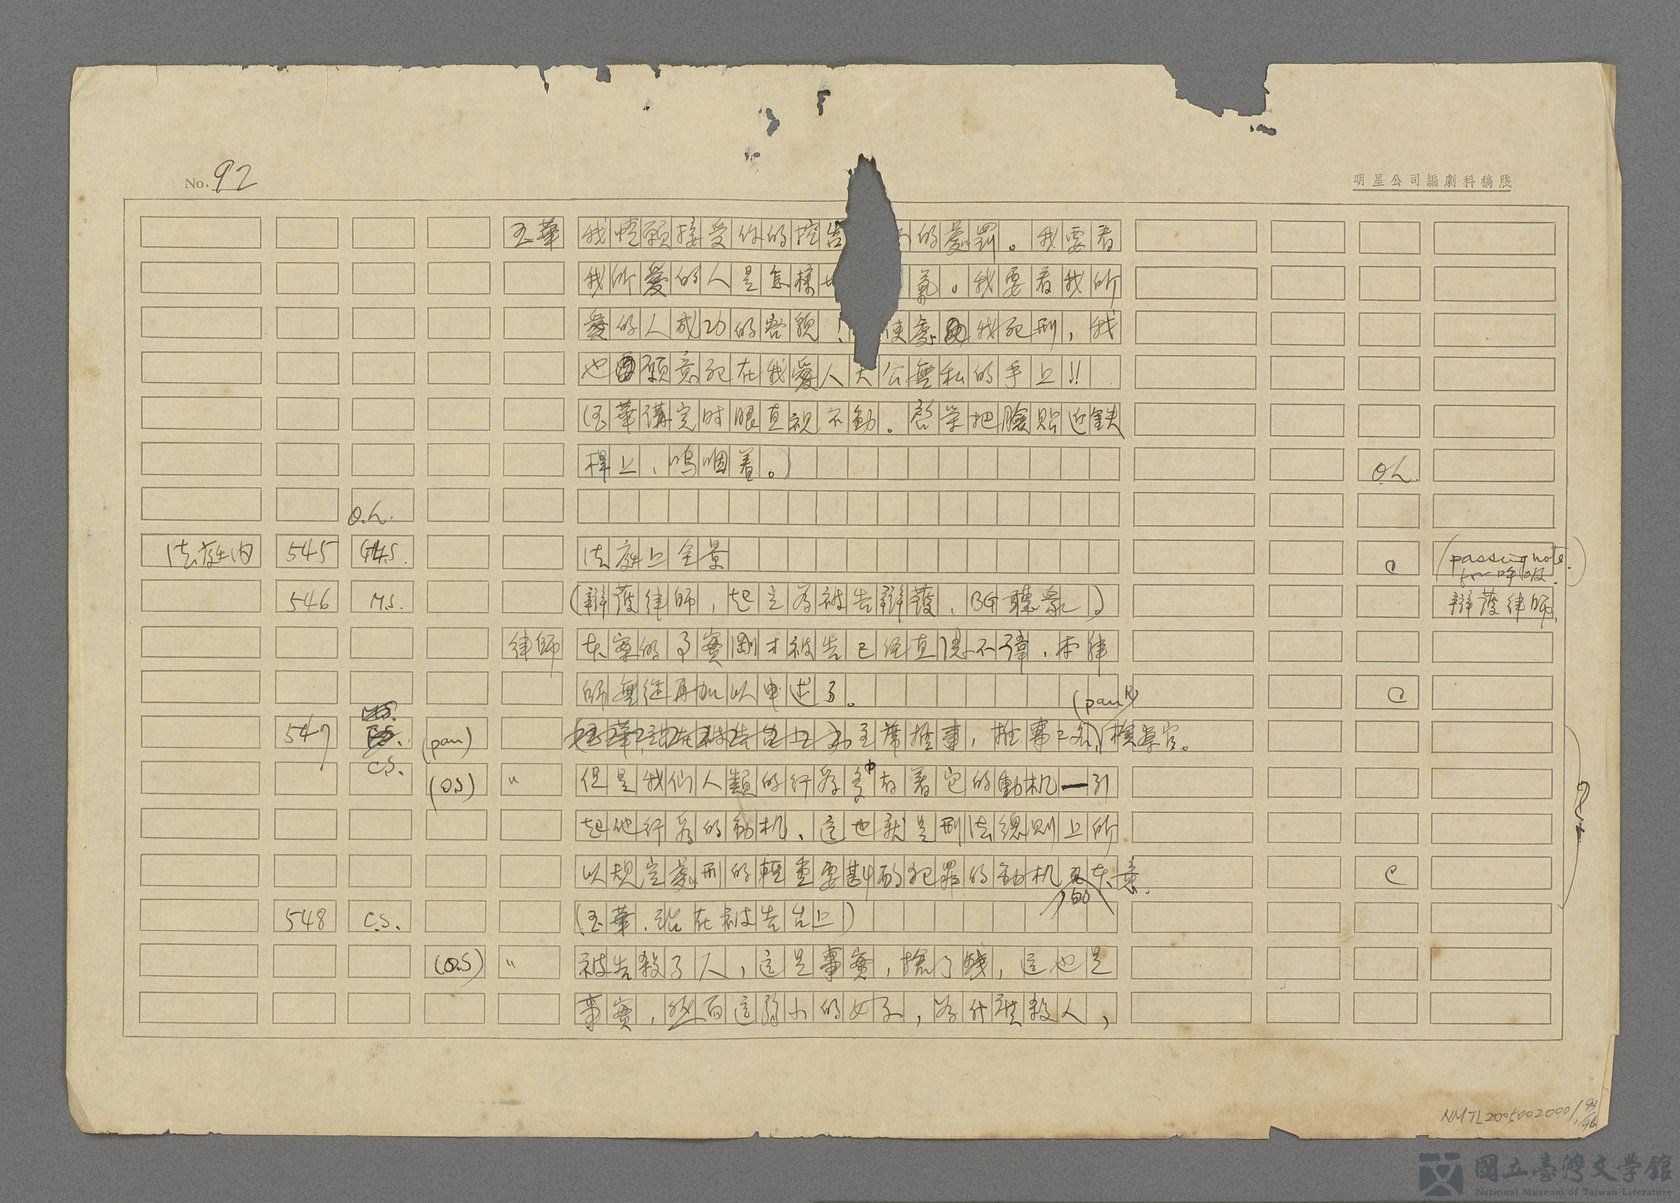 No. 92
明星公司編劇科稿牋
玉華 我情願接受你的控告 的處罰。我要看
我所愛的人是怎樣 氣。我要看我所
愛的人成功的容貌! 使處我死刑,我
也願意死在我愛人大公無私的手上!!
(玉華講完时眼直視不動。啓学把臉貼近鉄
桿上、嗚咽着。) O.L.
O.L.
法庭内 545 法庭上全景 C (passing note.
546 M.S. (辯護律師,起立為被告辯護,BG聽衆) 辯護律師
律師 本案的事實剛才被告已经直 不諱,本律
師無 再加以申述了。 (pan) C
547 C.S. (pan) 主席推事,推事二名,檢察官。
(OS) 〃 但是我们人類的行為多存着它的動机—引
起他行為的動机、這也就是刑法總則上所
以規定處刑的輕重要斟酌犯罪的動机的本意. C
548 C.S. (玉華.站在被告台上)
(OS) 〃 被告殺了人,這是事實,搶了錢,這也是
事實,然而這弱小的女子,為什麽殺人,
NMTL20050020001
國立臺灣文學館
National Museum of Taiwan Literature